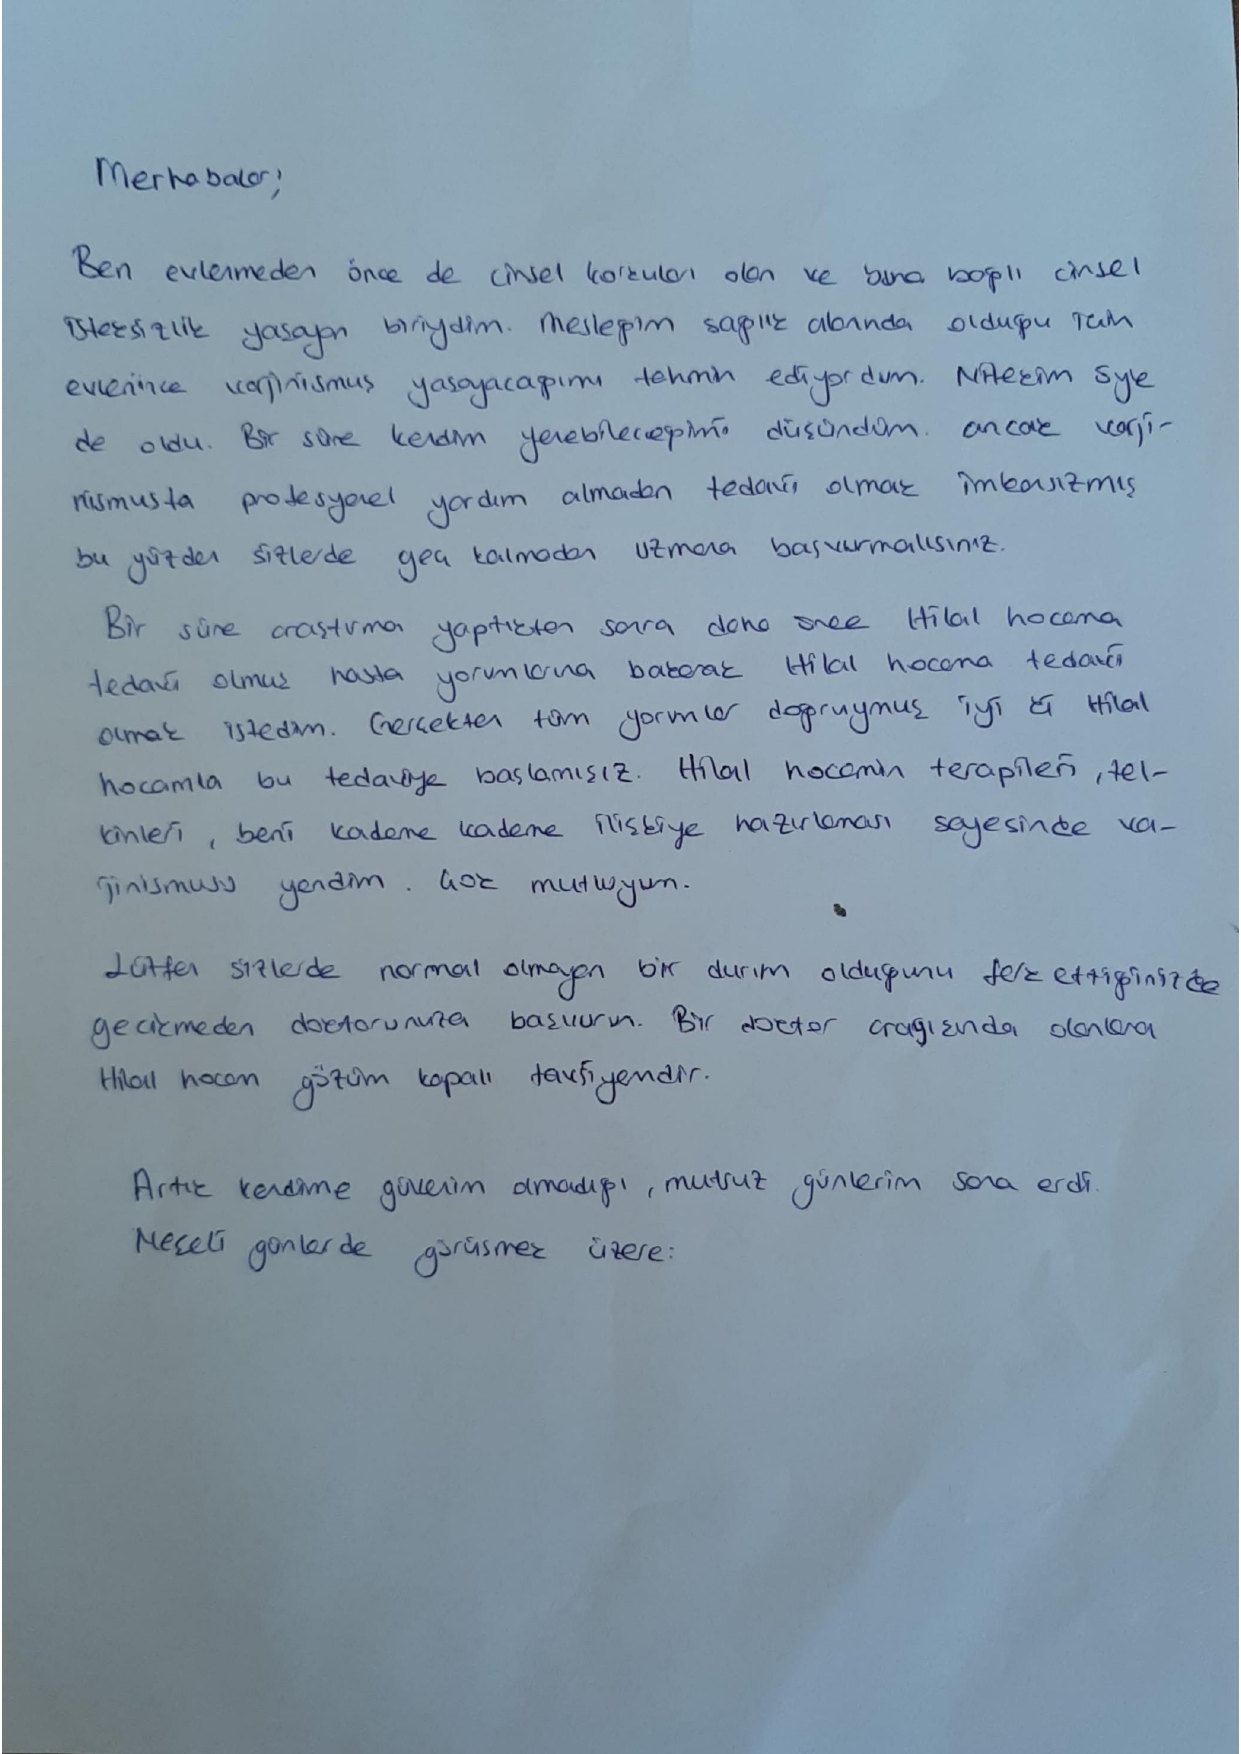 Merhabalar;
Ben evlenmeden önce de cinsel korkuları olan ve buna bağlı cinsel
isteksizlik yaşayan biriydim. Mesleğim sağlık alanında olduğu için
evlenince vajinismus yaşayacağımı tahmin ediyordum. Nitekim öyle
de oldu. Bir süre kendim yenebileceğimi düşündüm. ancak vaji-
nismusta profesyonel yardım almadan tedavi olmak imkansızmış
bu yüzden sizlerde geç kalmadan uzmana başvurmalısınız.
Bir süre araştırma yaptıktan sonra daha önce Hilal hocama
tedavi olmuş hasta yorumlarına bakarak Hilal hocama tedavi
olmak istedim. Gerçekten tüm yorumlar doğruymuş iyi ki Hilal
hocamla bu tedaviye başlamışız. Hilal hocamın terapileri, tel-
kinleri, beni kademe kademe ilişkiye hazırlaması sayesinde va-
jinismusu yendim. Çok mutluyum.
Lütfen sizlerde normal olmayan bir durum olduğunu fark ettiğinizde
gecikmeden doktorunuza başvurun. Bir doktor arayışında olanlara
Hilal hocam gözüm kapalı tavsiyemdir.
Artık kendime güvenim olmadığı, mutsuz günlerim sona erdi.
Neşeli günlerde görüşmek üzere: